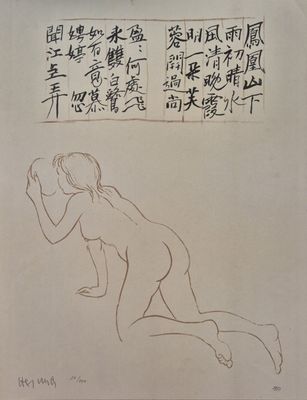 鳳凰山下
雨初晴水
風清晚霞
明一朵芙
蓉開過尚
盈:何處飛
來雙白鷺
如有意慕
娉婷忽
聞江上弄